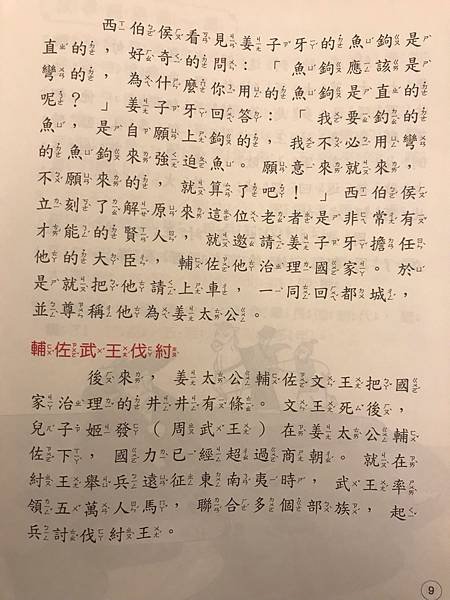 西伯侯看見姜子牙的魚鉤是
直的，好奇的問：「魚鉤應該是
彎的，為什麼你用的魚鉤是直的
呢？」姜子牙回答：「我要釣的
魚，是自願上鉤的，我不必用彎
的魚鉤來強迫魚。願意來就來，
不願來的，就算了吧！」西伯侯
立刻了解原來這位老者是非常有
才能的賢人，就邀請姜子牙擔任
他的大臣，輔佐他治理國家。於
是就把他請上車，一同回都城，
並尊稱他為姜太公。
輔佐武王伐紂
後來，姜太公輔佐文王把國
家治理的井井有條。文王死後，
兒子姬發（周武王）在姜太公輔
佐下，國力已經超過商朝。就在
紂王舉兵遠征東南夷時，武王率
領五萬人馬，聯合多個部族，起
兵討伐紂王。
9